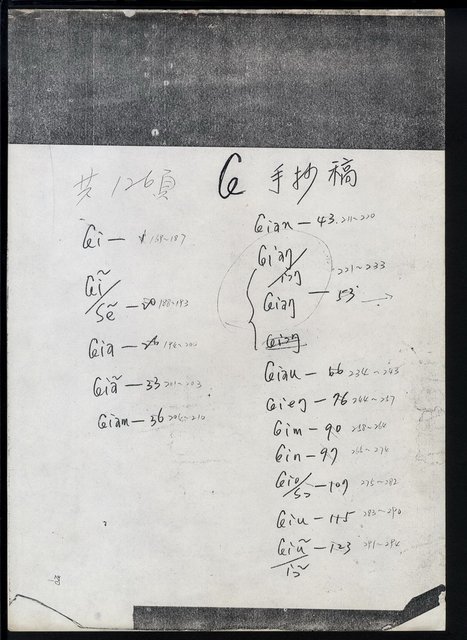 共126頁
G 手抄稿
Gi — 159~187
Gĩ/Sẽ — 188~193
Gia — 194~200
Giã — 33 201~203
Giam — 36 204~210
Gian — 43 211~220
Giaŋ/iɔŋ
Giaŋ — 53 → 221~233
Giɔŋ
Giau — 66 234~243
Gieŋ — 76 244~257
Gim — 90 258~264
Gin — 97 265~274
Gio/Sɔ — 107 275~282
Giu — 115 283~290
Giũ/iɔ̃ — 123 291~294